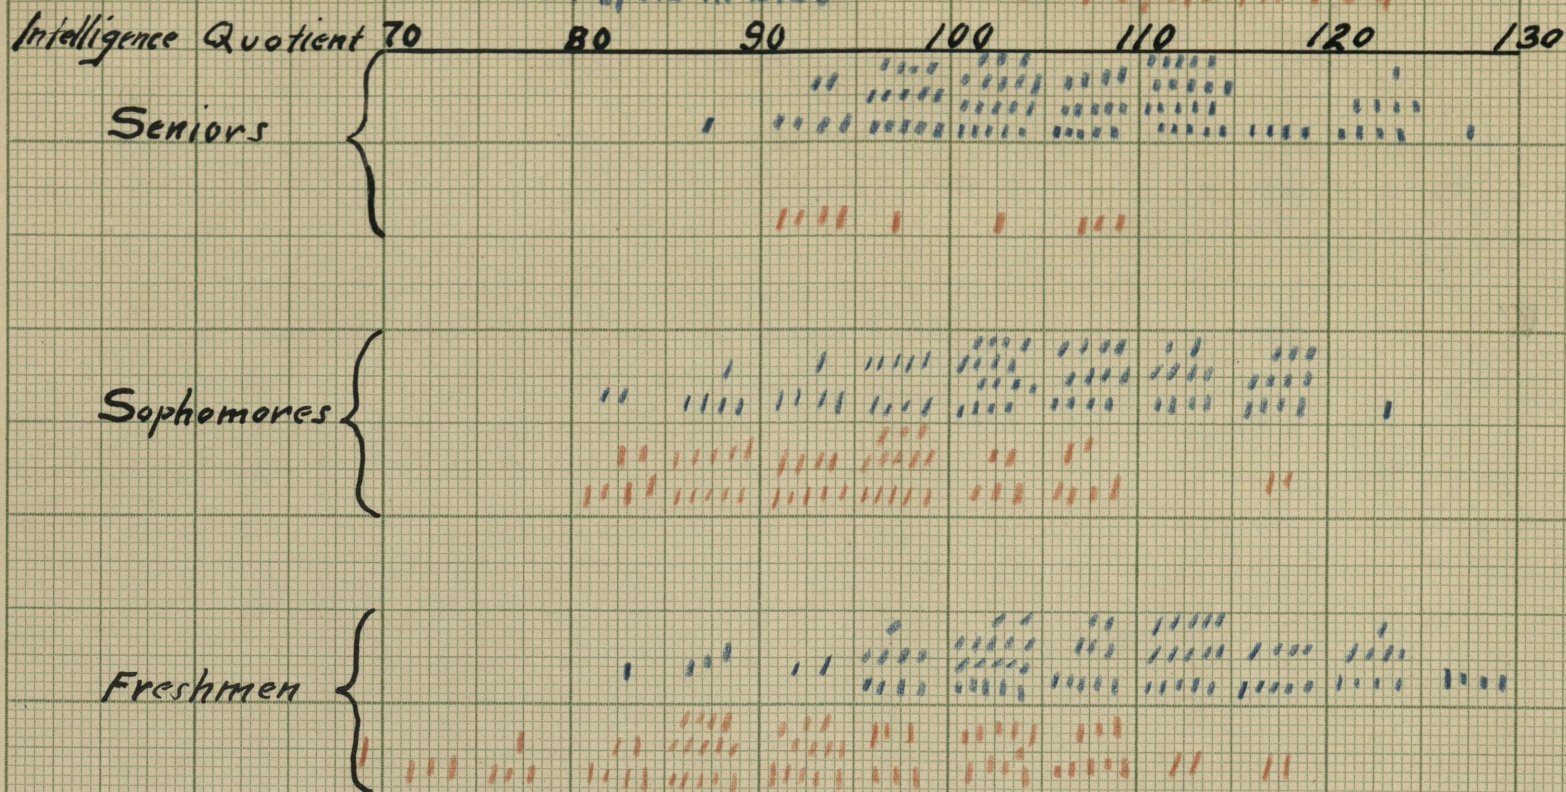 Intelligence Quotient 70 80 90 100 110 120 130
Seniors
Sophomores
Freshmen